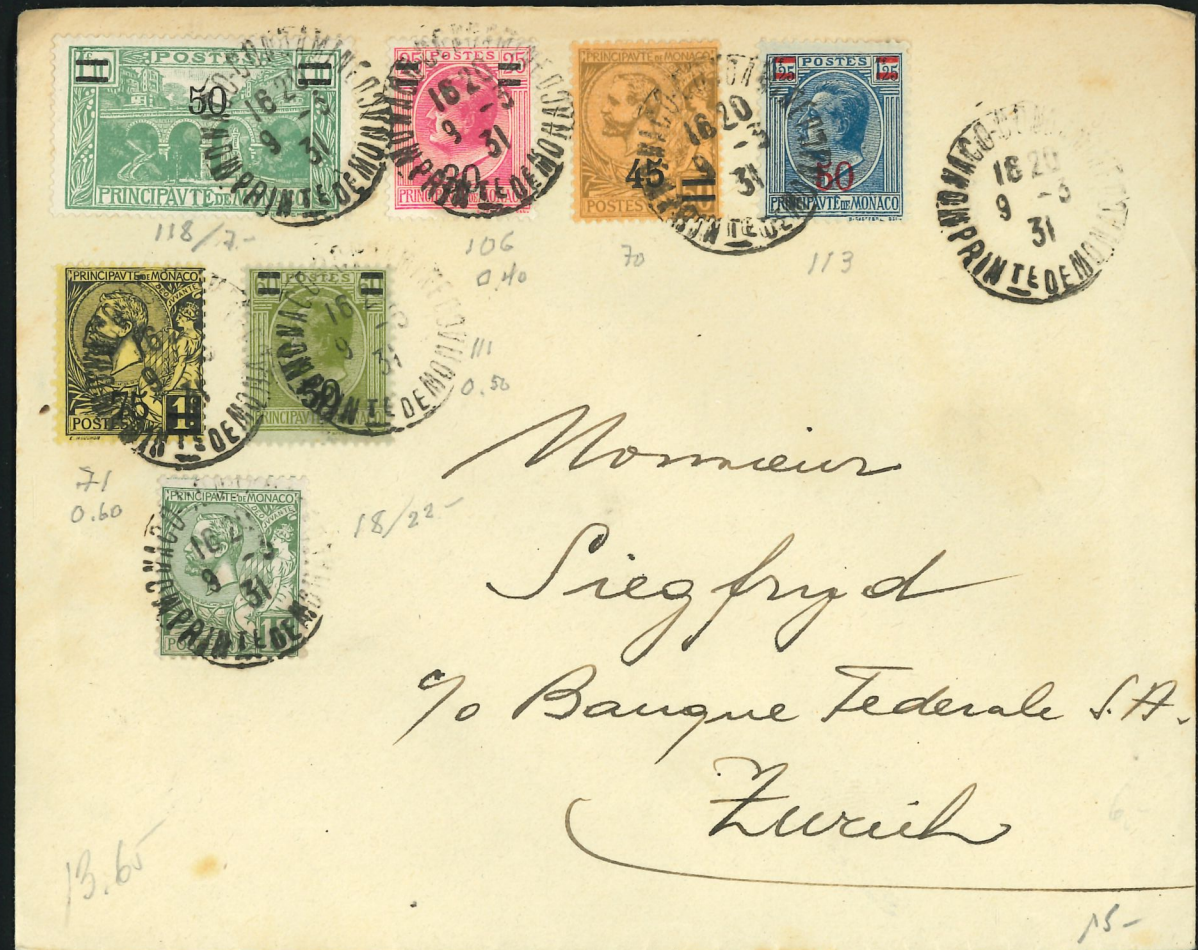 POSTES
50
PRINCIPAVTE DE M
25 25
20
PRINCIPAVTE DE MONAC
PRINCIPAVTE DE MONACO
45
POSTES
1F
1F25 POSTES 1F25
50
PRINCIPAVTÉ DE MONACO
MONACO-CONDAMINE
16 20
9 -3
31
PRINTE DE MONACO
118/7-
106
0.40
70
113
PRINCIPAVTE DE MONACO
75
POSTES
1F
POSTES
50
PRINCIPAV
111
0.50
71
0.60
18/22-
PRINCIPAVTE DE MONACO
Monsieur
Siegfryd
c/o Banque Federale S.A.
Zurich
13.65
15-